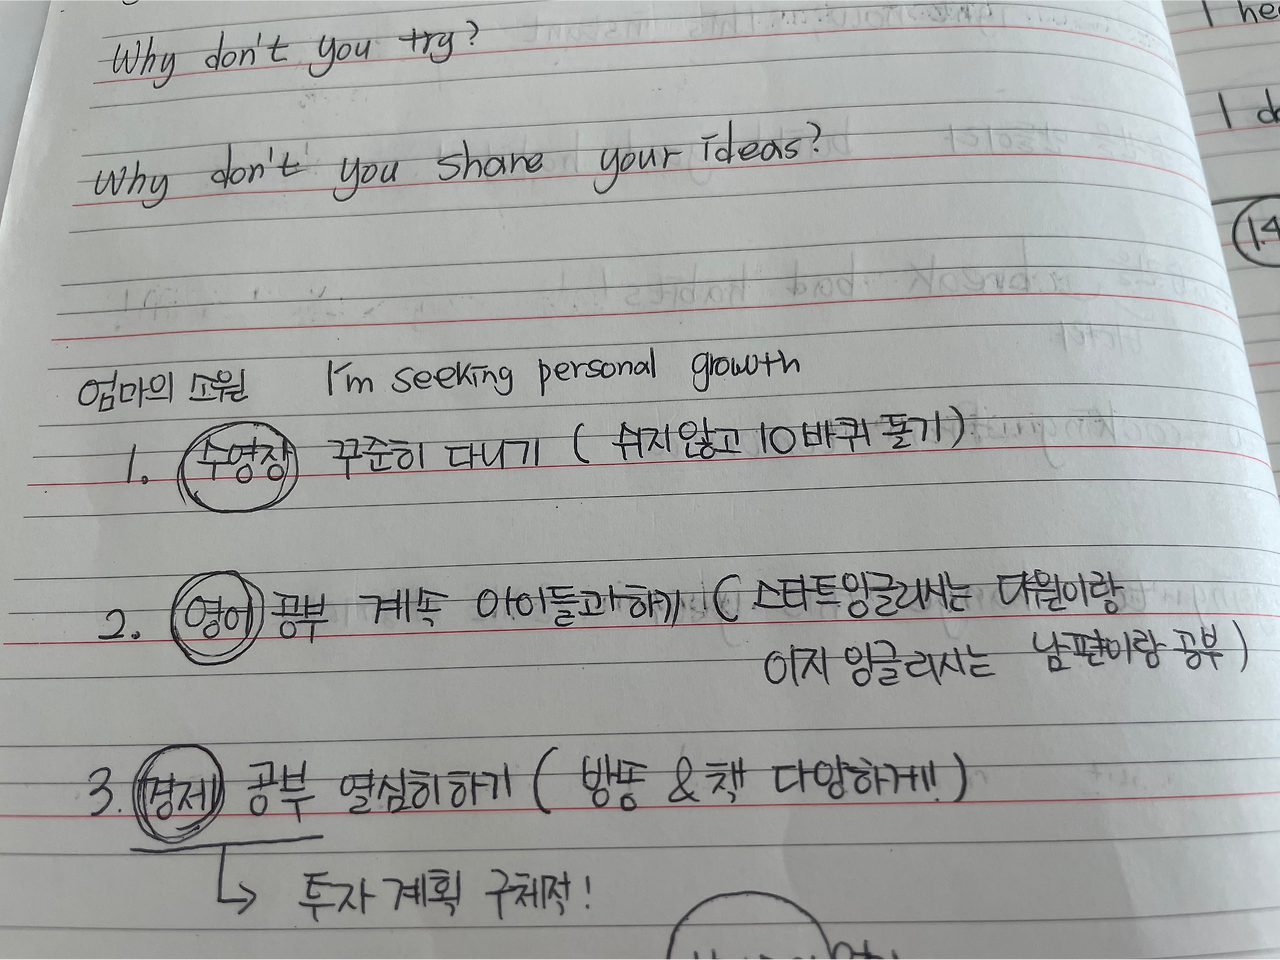 Why don't you try?
Why don't you share your ideas?
엄마의 소원 I'm seeking personal growth
1. 수영장 꾸준히 다니기 ( 쉬지않고 10바퀴 돌기)
2. 영어 공부 계속 아이들과하기 ( 스타트잉글리시는 다원이랑
이지 잉글리시는 남편이랑 공부)
3. 경제 공부 열심히하기 ( 방송 & 책 다양하게!! )
↳ 투자계획 구체적!
14